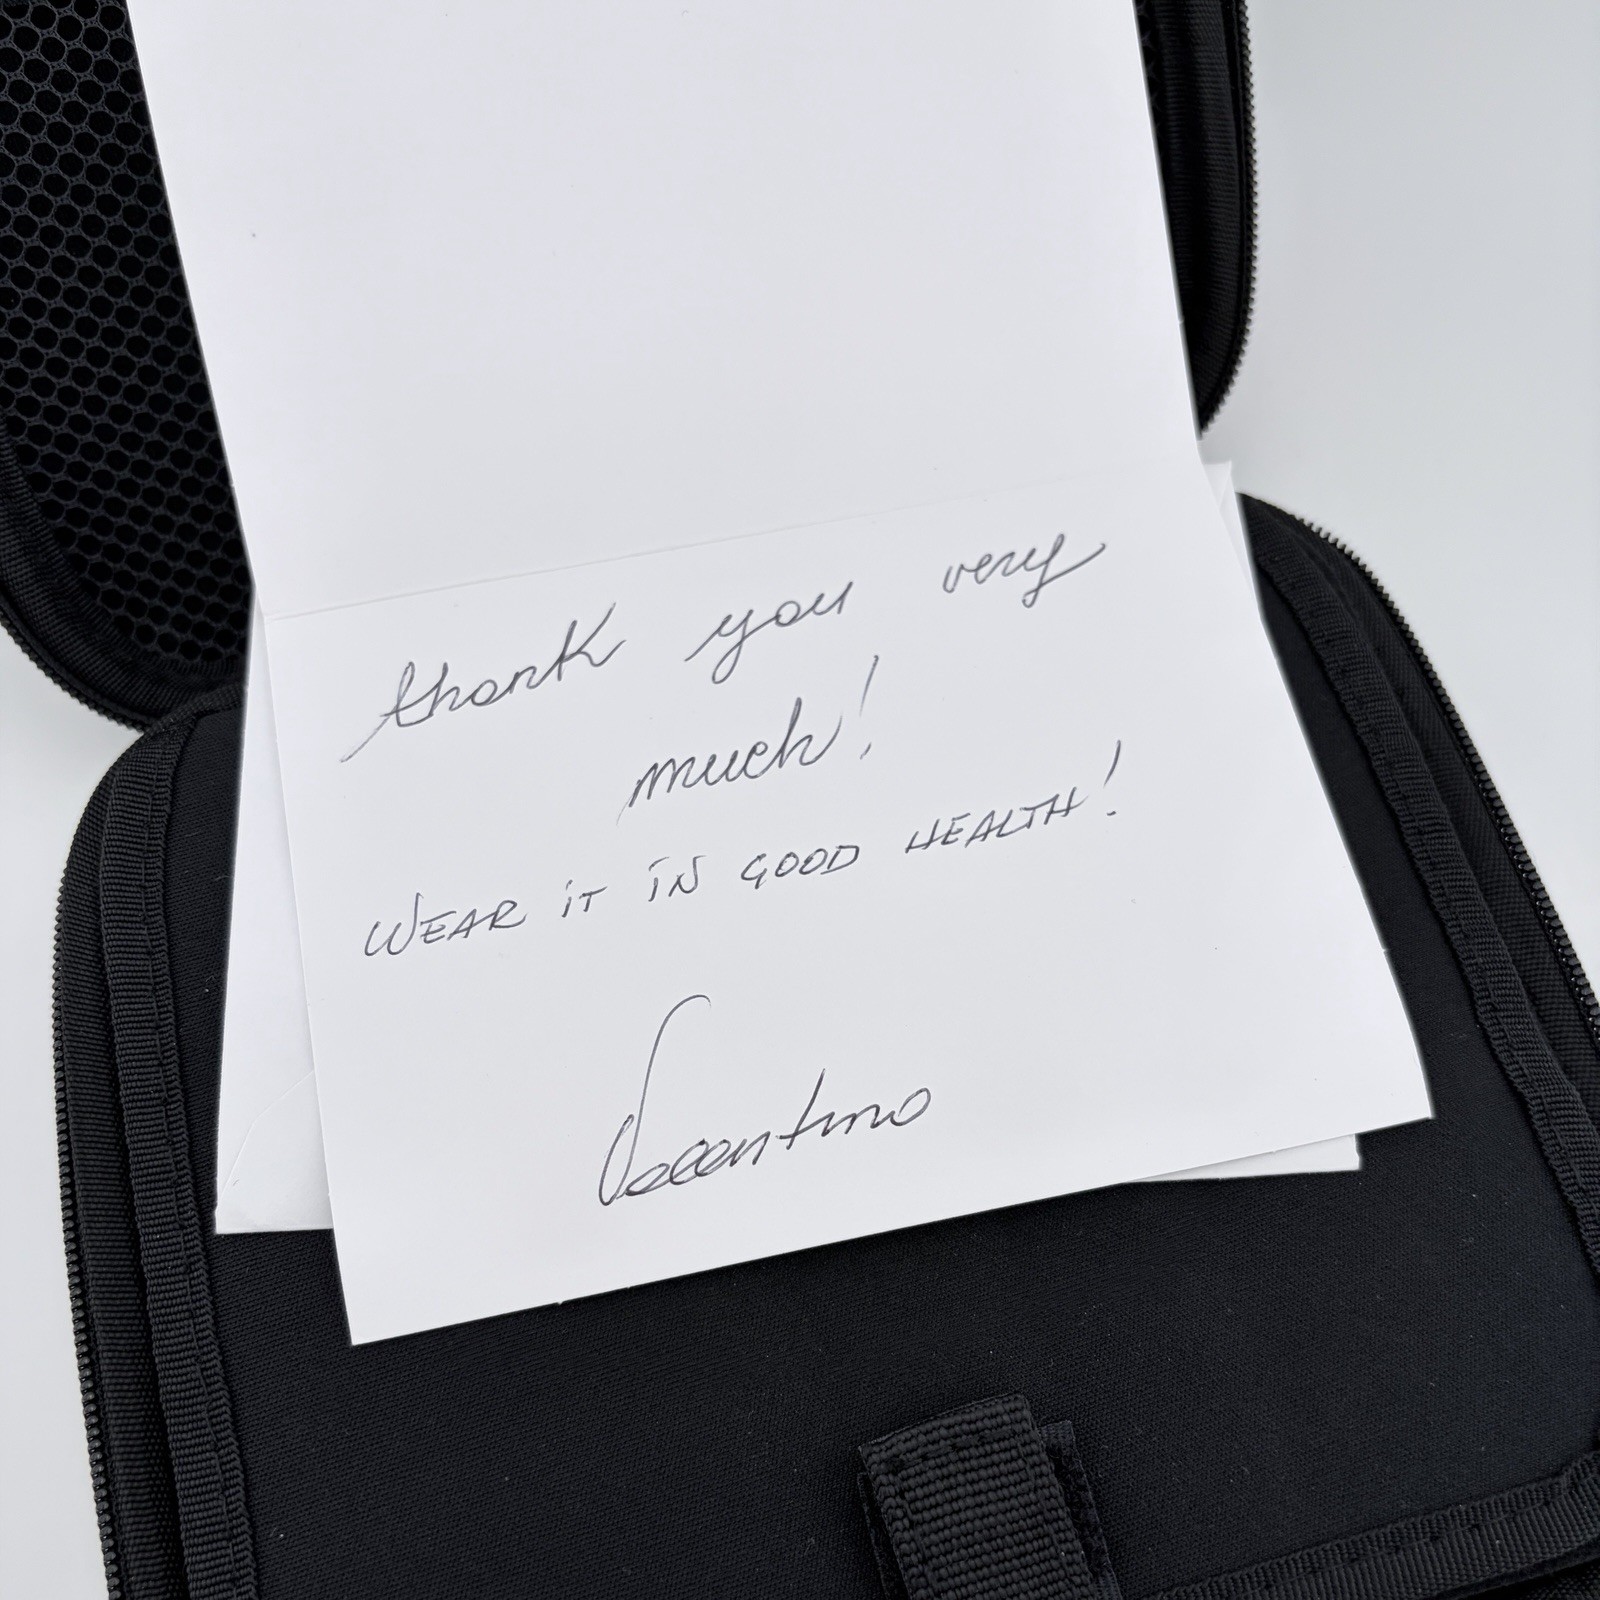 thank you very
much!
WEAR iT iN GOOD HEALTH!
Valentino